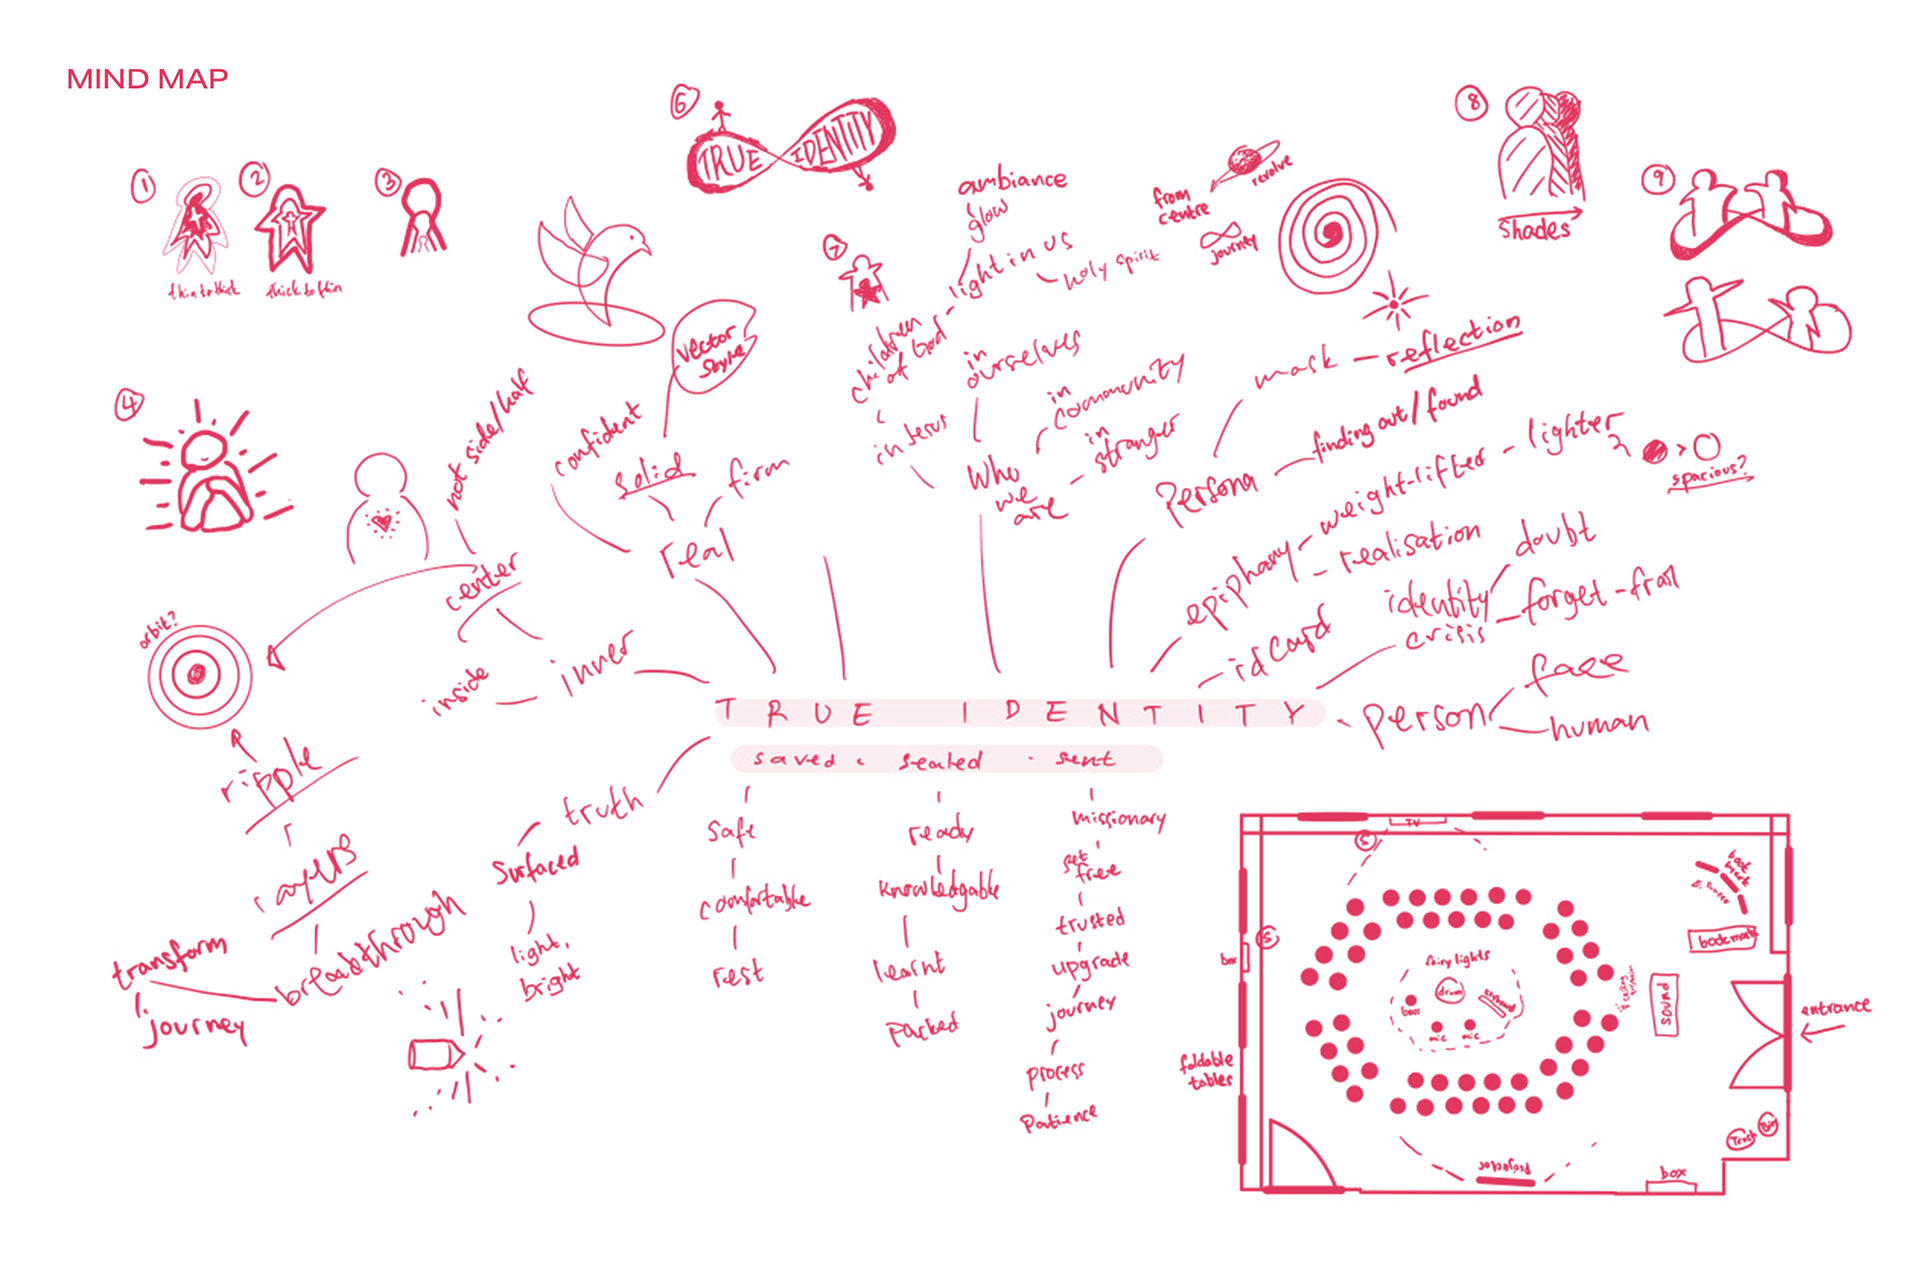 MIND MAP
1
2
3
thin to thick
thick to thin
6
TRUE IDENTITY
8
shades
9
ambiance
glow
light in us
holy spirit
from
centre
revolve
journey
7
children
of God
in Jesus
in
ourselves
in
community
in
stranger
Who
we
are
mask - reflection
Persona
finding out/found
vector
style
4
not side/half
confident
solid
firm
real
center
inner
inside
orbit?
ripple
layers
breakthrough
transform
journey
epiphany - weight-lifter - lighter
realisation
>
spacious?
id card
identity
crisis
doubt
forget - frail
person
face
human
TRUE IDENTITY
saved . sealed . sent
truth
surfaced
light,
bright
safe
comfortable
rest
ready
knowledgable
learnt
packed
missionary
set
free
trusted
upgrade
journey
process
patience
TV
S
S
box
foldable
tables
fairy lights
drum
keyboard
mic
mic
bookmark
sound
entrance
Trash
Bin
box
projector